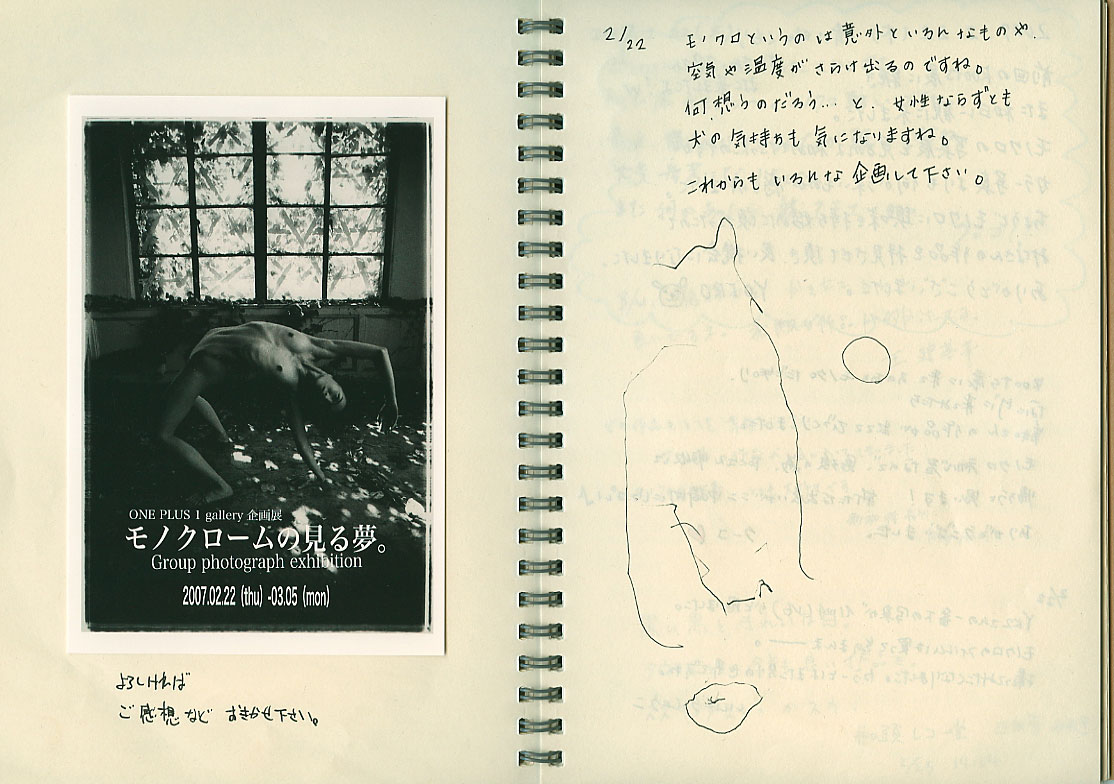 ONE PLUS 1 gallery 企画展
モノクロームの見る夢。
Group photograph exhibition
2007.02.22 (thu) -03.05 (mon)
よろしければ
ご感想など おきかせ下さい。
2/22 モノクロというのは意外といろんなものや、
空気や温度がさらけ出るのですね。
何想うのだろう…と、女性ならずとも
犬の気持ちも気になりますね。
これからもいろんな企画して下さい。